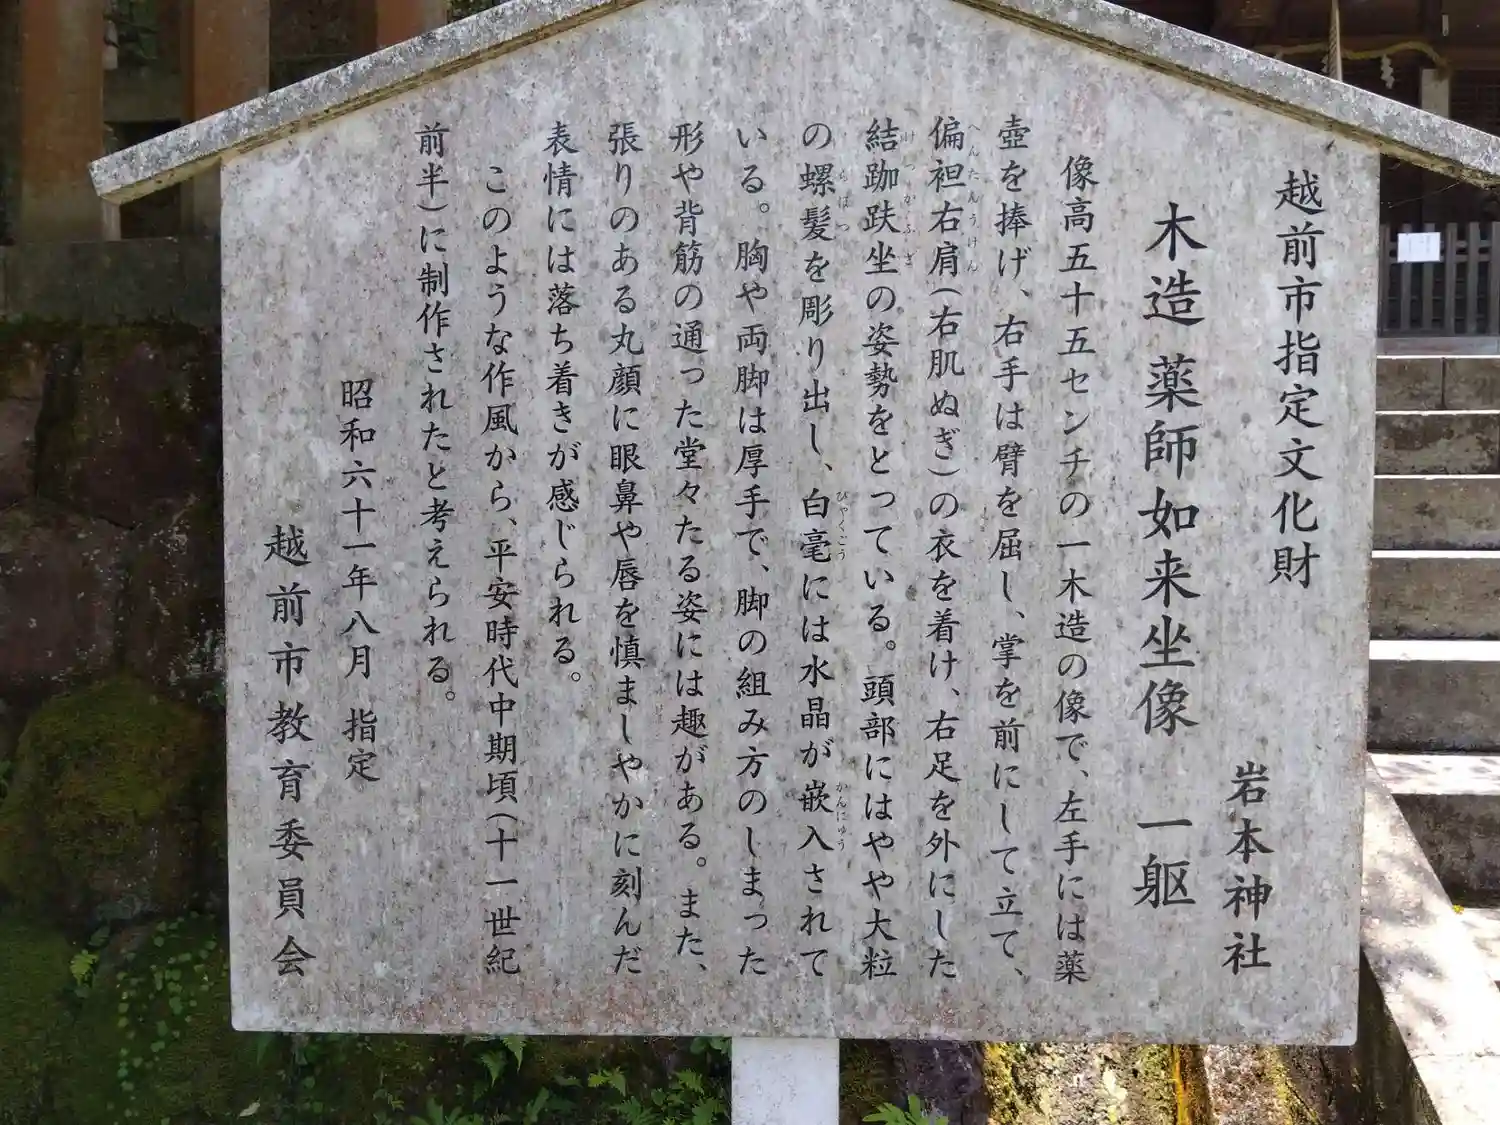 越前市指定文化財
木造 薬師如来坐像 一躯
岩本神社
像高五十五センチの一木造の像で、左手には薬
壺を捧げ、右手は臂を屈し、掌を前にして立て、
偏袒右肩(右肌ぬぎ)の衣を着け、右足を外にした
へんたんうけん
結跏趺坐の姿勢をとっている。頭部にはやや大粒
けつかふざ
の螺髪を彫り出し、白毫には水晶が嵌入されて
らほつ
びゃくごう
かんにゅう
いる。胸や両脚は厚手で、脚の組み方のしまった
形や背筋の通った堂々たる姿には趣がある。また、
張りのある丸顔に眼鼻や唇を慎ましやかに刻んだ
表情には落ち着きが感じられる。
このような作風から、平安時代中期頃(十一世紀
前半)に制作されたと考えられる。
昭和六十一年八月 指定
越前市教育委員会